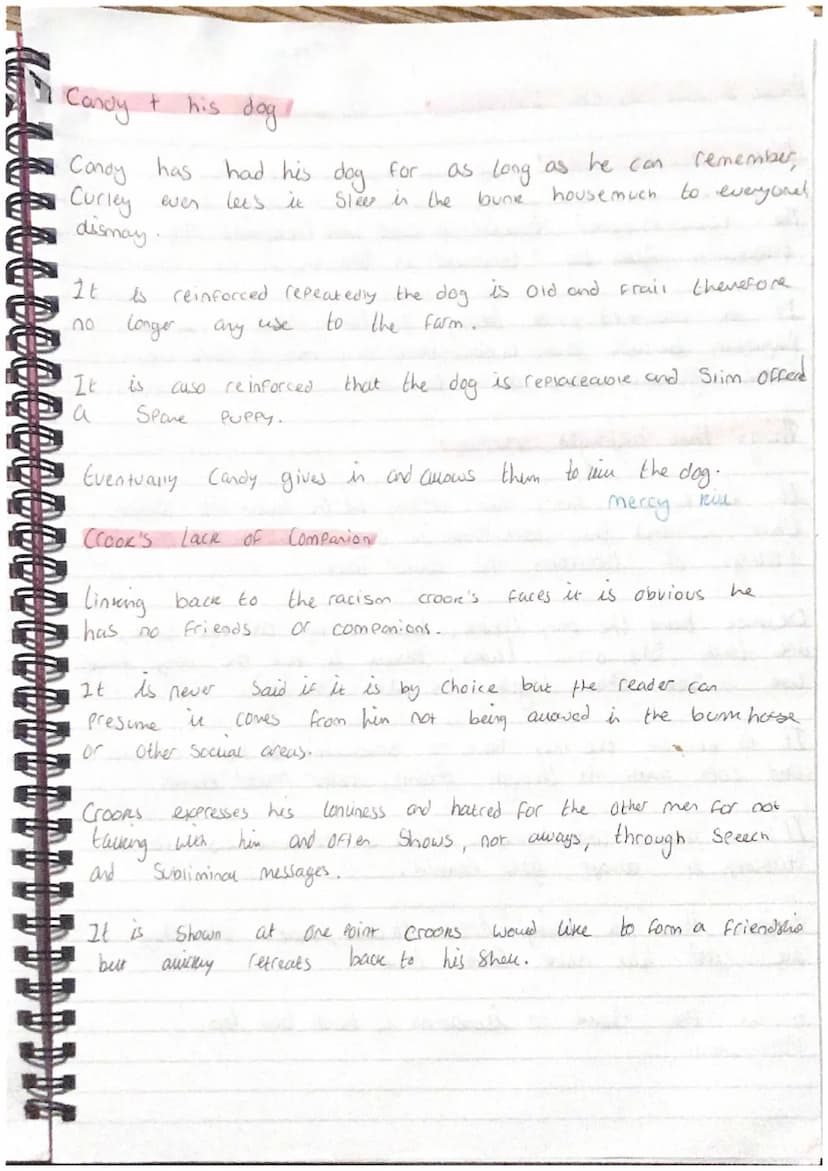 Candy + his dog
Candy has had his dog for as long as he can remember,
Curley even lets it sleep in the bunk house much to everyones
dismay.
It is reinforced repeatedly the dog is old and frail therefore
no longer any use to the farm.
It is also reinforced that the dog is replaceable and Slim offered
a spare puppy.
Eventually Candy gives in and allows them to kill the dog.
mercy kill
Crook's lack of companion
Linking back to the racism crook's faces it is obvious he
has no friends or companions.
It is never said if it is by choice but the reader can
presume it comes from him not being allowed in the bunkhouse
or other social areas.
Crooks expresses his lonliness and hatred for the other men for not
talking with him and often shows, not always, through speech
and subliminal messages.
It is shown at one point crooks would like to form a friendship
but quickly retreats back to his shell.